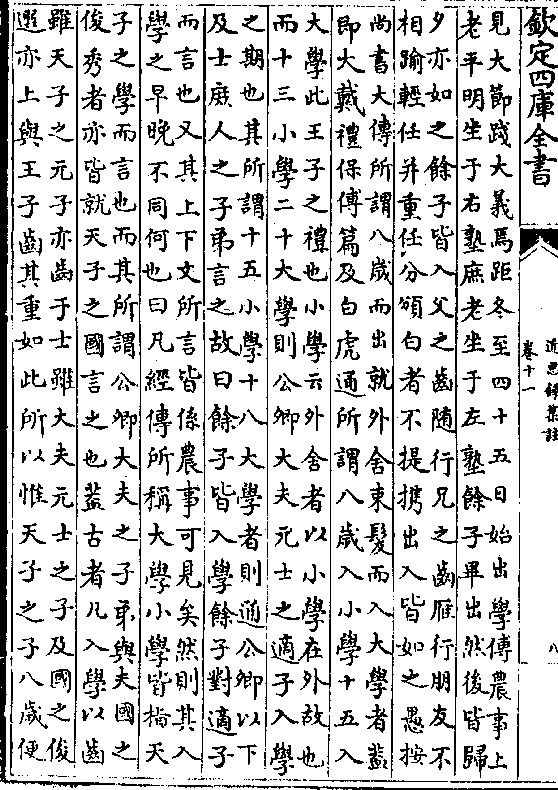 欽定四庫全書
近思錄集註
卷十一
八
見大節踐大義焉距冬至四十五日始出學傅農事上
老平明坐于右塾庶老坐于左塾餘子畢出然後皆歸
夕亦如之餘子皆入父之齒隨行兄之齒雁行朋友不
相踰輕任并重任分頒白者不提攜出入皆如之愚按
尚書大傳所謂八歲而出就外舍束髮而入大學者蓋
即大戴禮保傅篇及白虎通所謂八歲入小學十五入
大學此王子之禮也小學云外舍者以小學在外故也
而十三小學二十大學則公卿大夫元士之適子入學
之期也其所謂十五小學十八大學者則通公卿以下
及士庶人之子弟言之故曰餘子皆入學餘子對適子
而言也又其上下文所言皆係農事可見矣然則其入
學之早晚不同何也曰凡經傳所稱大學小學皆指天
子之學而言也而其所謂公卿大夫之子弟與夫國之
俊秀者亦皆就天子之國言之也蓋古者凡入學以齒
雖天子之元子亦齒于士雖大夫元士之子及國之俊
選亦上與王子齒其重如此所以惟天子之子八歲便